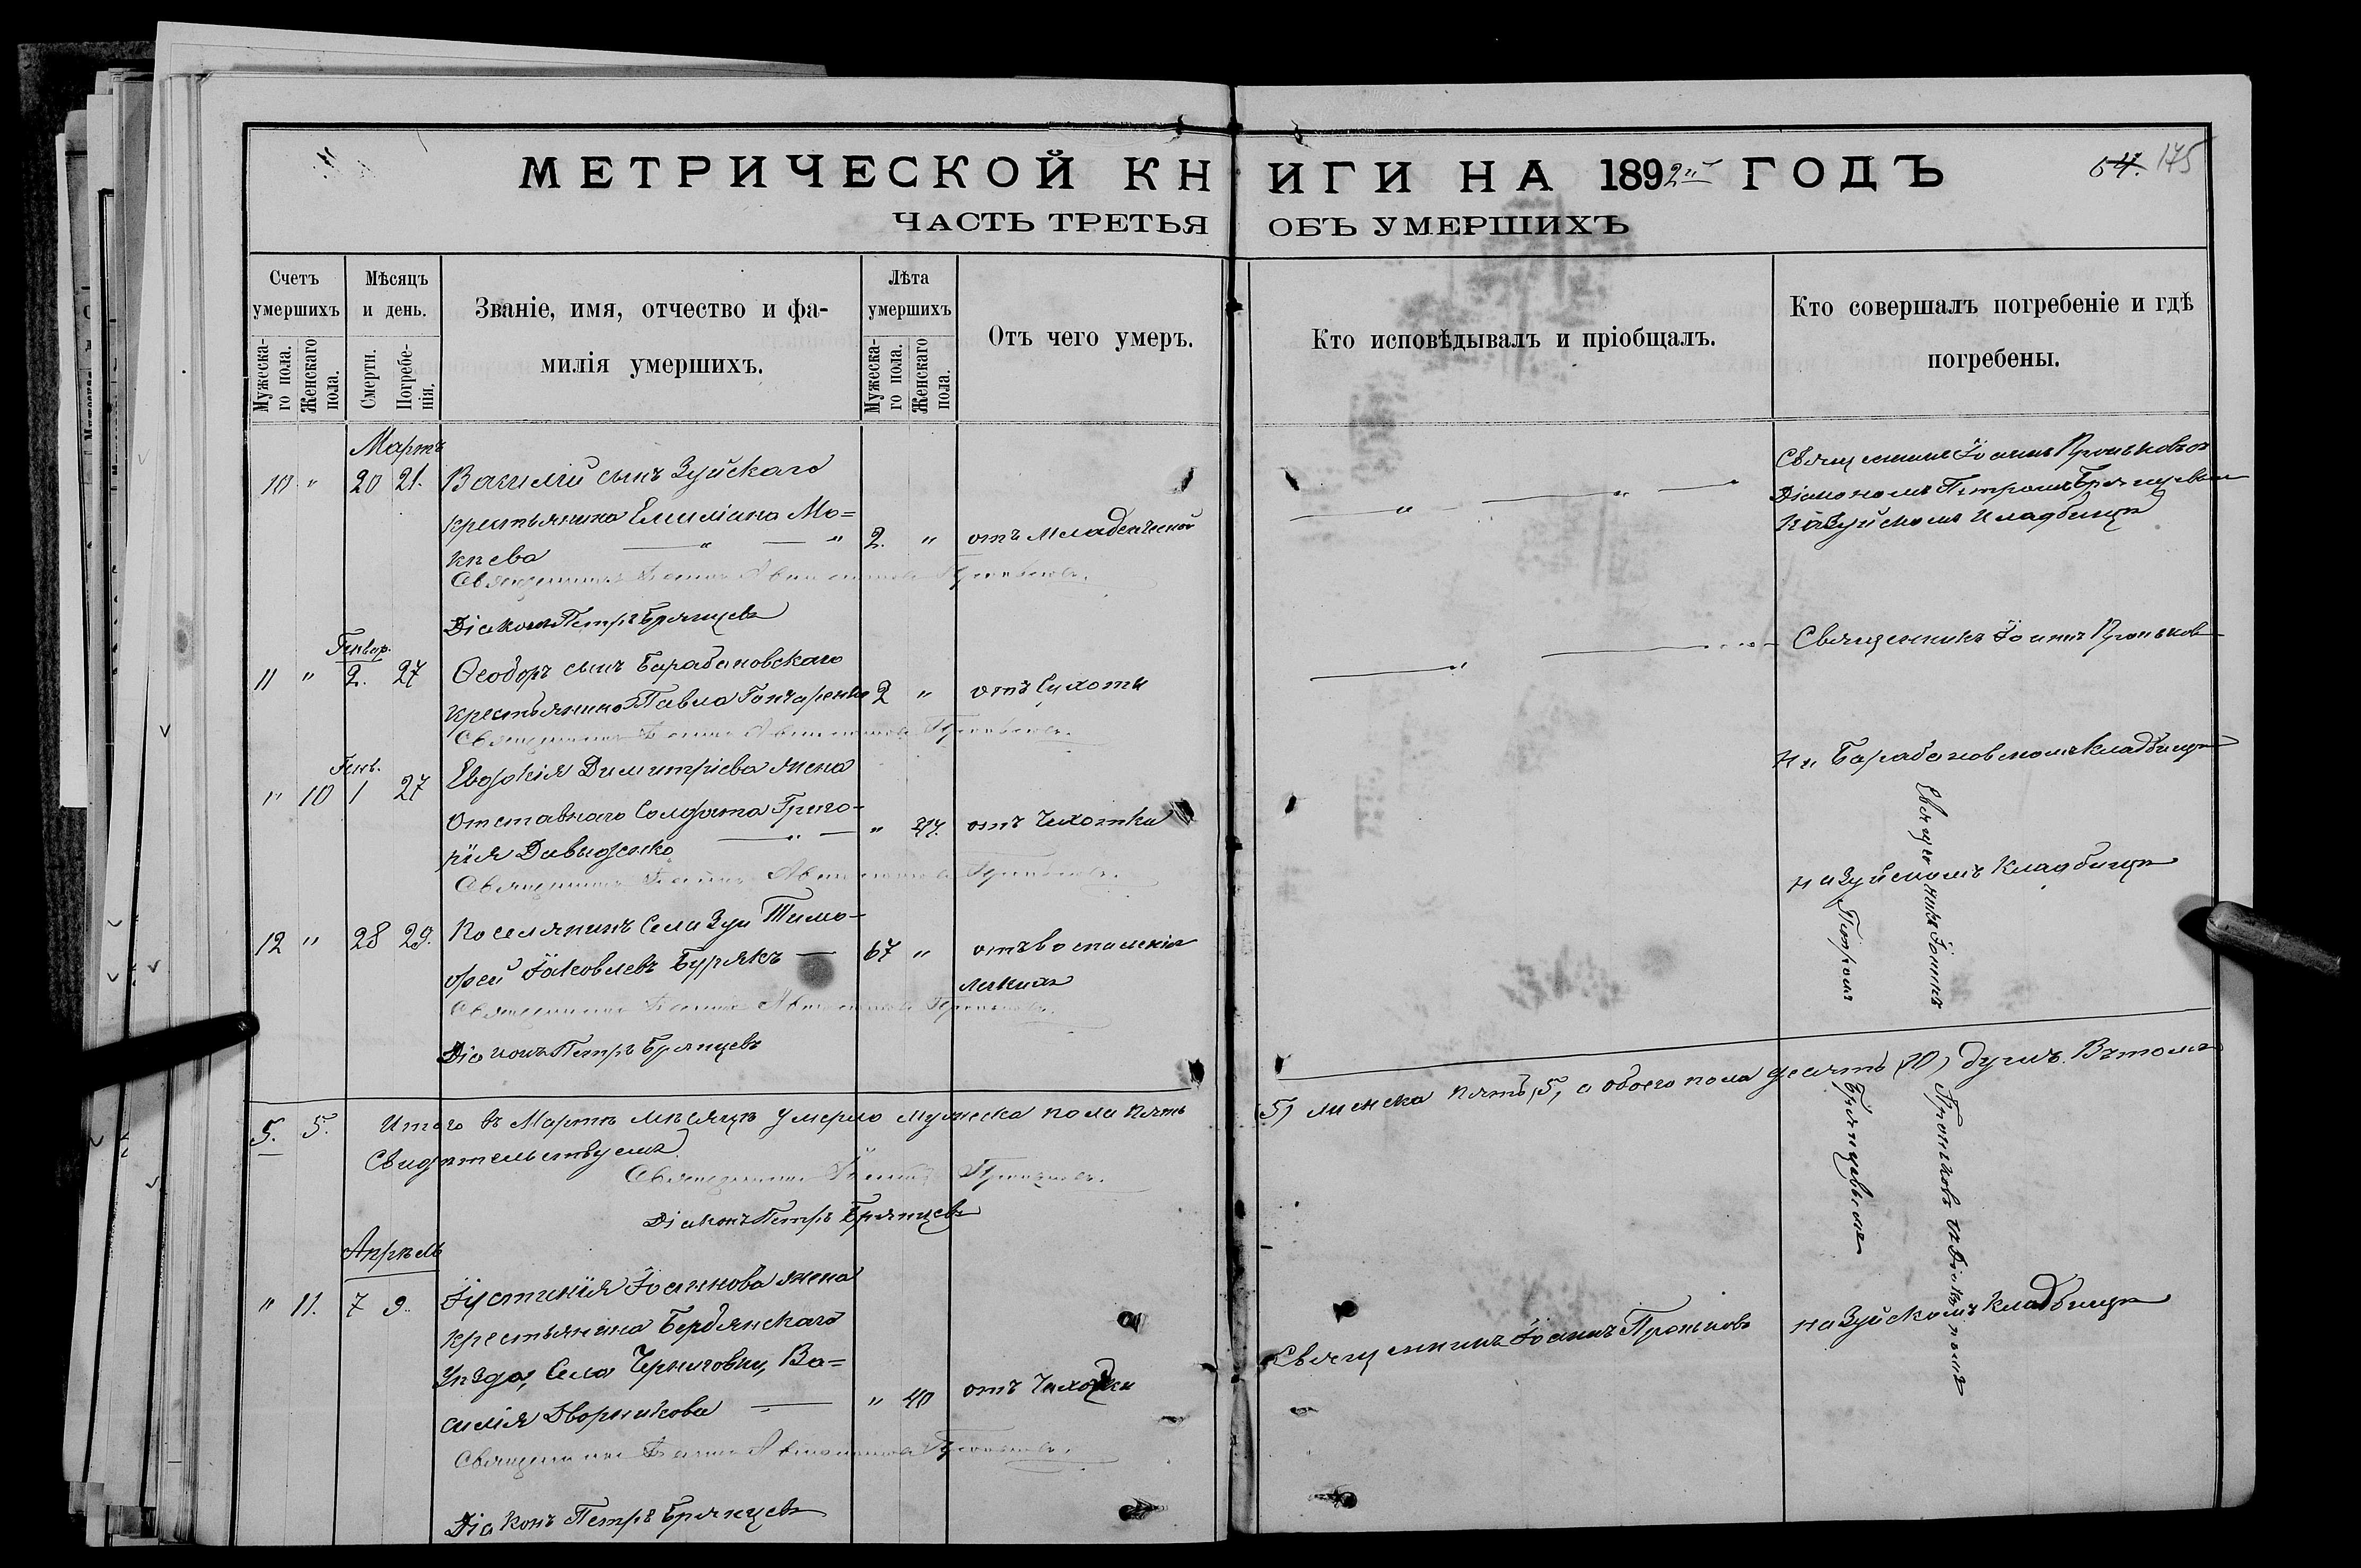 МЕТРИЧЕСКОЙ КНИГИ НА 1892й ГОДЪ
175
ЧАСТЬ ТРЕТЬЯ ОБЪ УМЕРШИХЪ
Счетъ умершихъ
Мужескаго пола.
Женскаго пола.
Мѣсяцъ и день.
Смерти.
Погребенія.
Званіе, имя, отчество и фа-
милія умершихъ.
Лѣта умершихъ
Мужескаго пола.
Женскаго пола.
Отъ чего умеръ.
Кто исповѣдывалъ и пріобщалъ.
Кто совершалъ погребеніе и гдѣ
погребены.
Мартъ
10 " 20 21. Василій сынъ Зуйскаго
крестьянина Емиліана Мо=
кнева 2. " отъ Младенческой
Священникъ Іоаннъ Проньковъ съ
Діакономъ Петромъ Брянцевым
на Зуйскомъ кладбищѣ
Священникъ Іоаннъ Проньковъ.
Діаконъ Петръ Брянцевъ
Генвар.
11 " 2. 27 Ѳеодоръ сынъ Барабановскаго
крестьянина Павла Гончаренко 2 " отъ Сухоты
Священникъ Іоаннъ Проньков
на Барабановскомъ кладбищѣ
Священникъ Іоаннъ Проньковъ.
Генв.
" 10 1 27 Евдокія Димитріева жена
Отставного Солдата Григо-
рія Давиденко " 47. отъ Чахотки
на Зуйскомъ кладбищѣ
Священникъ Іоаннъ Проньковъ.
12 " 28 29. Поселянинъ Села Зуи Тимо-
фей Іаковлевъ Бурякъ 67 " отъ воспаленія
легкихъ
Священникъ Іоаннъ Проньковъ.
Діаконъ Петръ Брянцевъ
Священникъ Іоаннъ Проньковъ съ Діакономъ
Петромъ Брянцевымъ
5. 5. Итого въ Мартѣ мѣсяцѣ умерло мужеска пола пять (5) женска пять (5, а обоего пола десять (10) душъ. Въ томъ
Свидѣтельствуемъ
Священникъ Іоаннъ Проньковъ.
Діаконъ Петръ Брянцевъ
Апрѣль
" 11. 7 9. Іустинія Іоаннова жена
крестьянина Бердянскаго
Уѣзда, Села Черниговки, Ва=
силія Дворникова " 40 отъ Чахотки
Священникъ Іоаннъ Проньковъ
на Зуйскомъ кладбищѣ
Священникъ Іоаннъ Проньковъ.
Діаконъ Петръ Брянцевъ